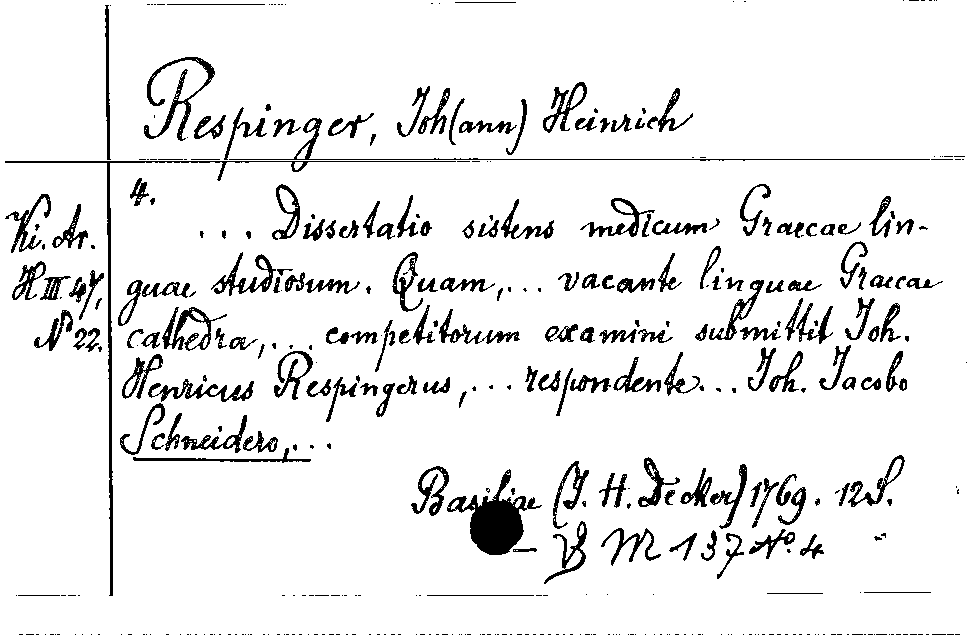 Respinger, Joh(ann) Heinrich
4.
Ki. Ar.
H III 47,
N° 22.
... Dissertatio sistens medicum Graecae lin-
guae studiosum. Quam,... vacante linguae Graecae
cathedra,... competitorum examini submittit Joh.
Henricus Respingerus,... respondente... Joh. Jacobo
Schneidero,...
Basiliae (J. H. Decker) 1769. 12 S.
— M 137 N°. 4